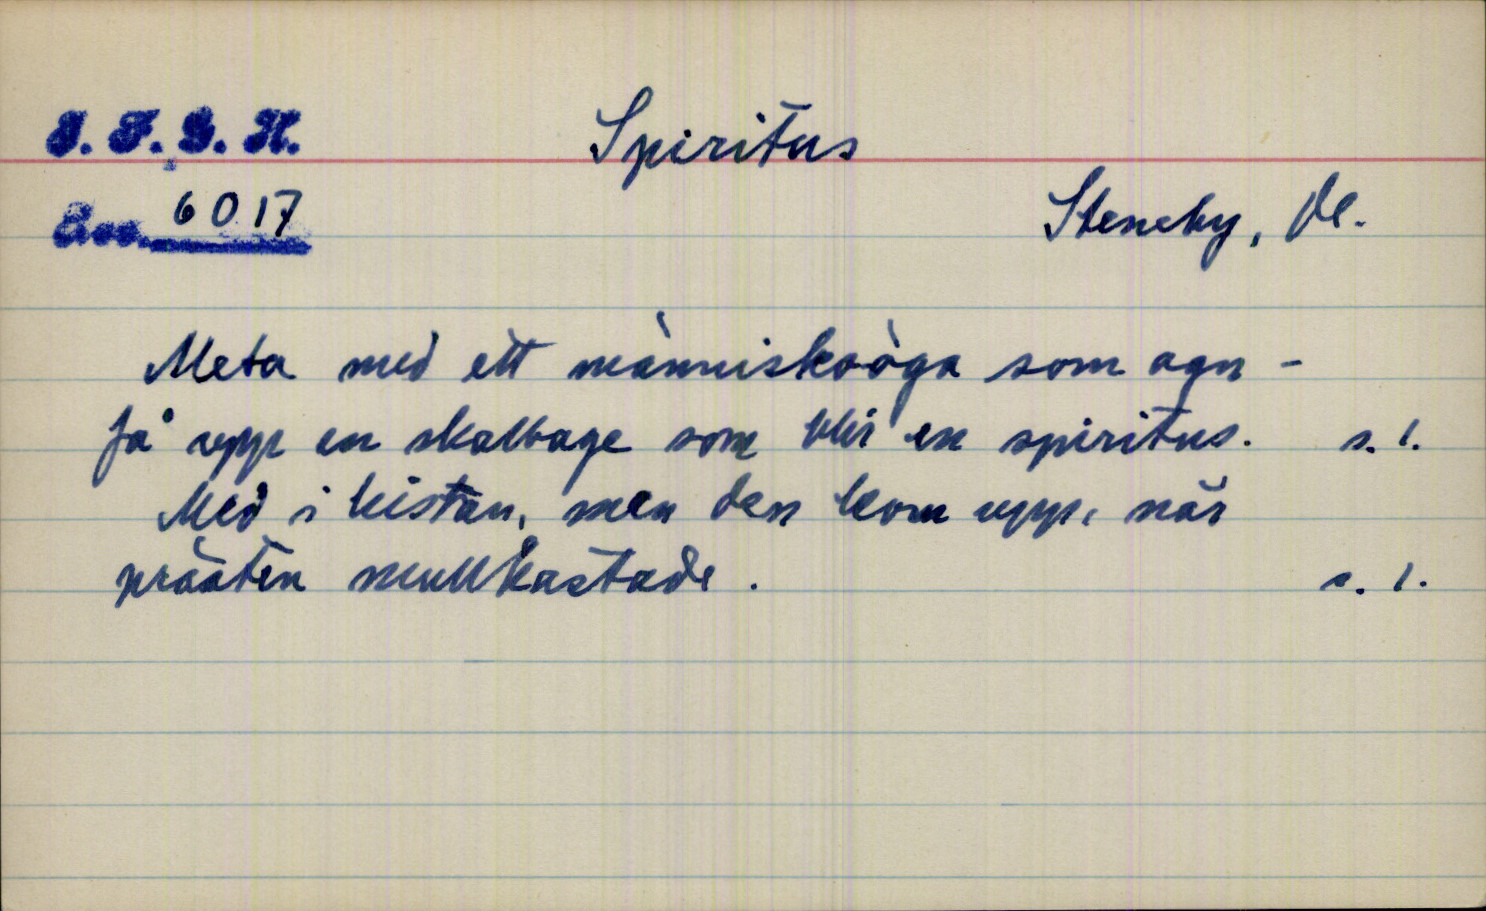 I. F. G. H.
Spiritus
Acc. 6017
Steneby, Dl.
Meta med ett människoöga som agn -
få upp en skalbagge som blir en spiritus. s. 1.
Med i kistan, men den kom upp, när
prästen mullkastade. s. 1.